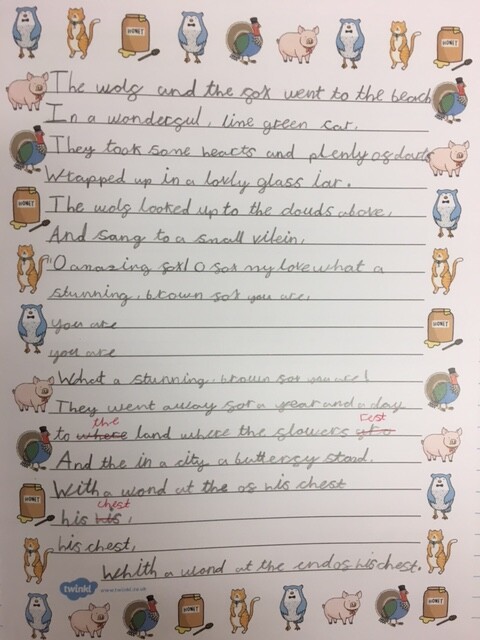 The wolg and the gox went to the beach
In a wondergul, lime green car.
They took some hearts and plenty og darts
Wrapped up in a lovly glass jar.
The wolg looked up to the clouds above,
And sang to a small vilein,
"O amazing gox! O gox my love what a
stunning, brown gox you are,
you are
you are
What a stunning, brown gox you are!
They went away gor a year and a day
the rest
to where land where the glowers gro
And the in a city a buttergy stood.
With a wond at the og his chest
chest
his his,
his chest,
Whith a wond at the end og his chest.
HONEY
HONEY
HONEY
HONEY
HONEY
HONEY
HONEY
HONEY
twinkl www.twinkl.co.uk